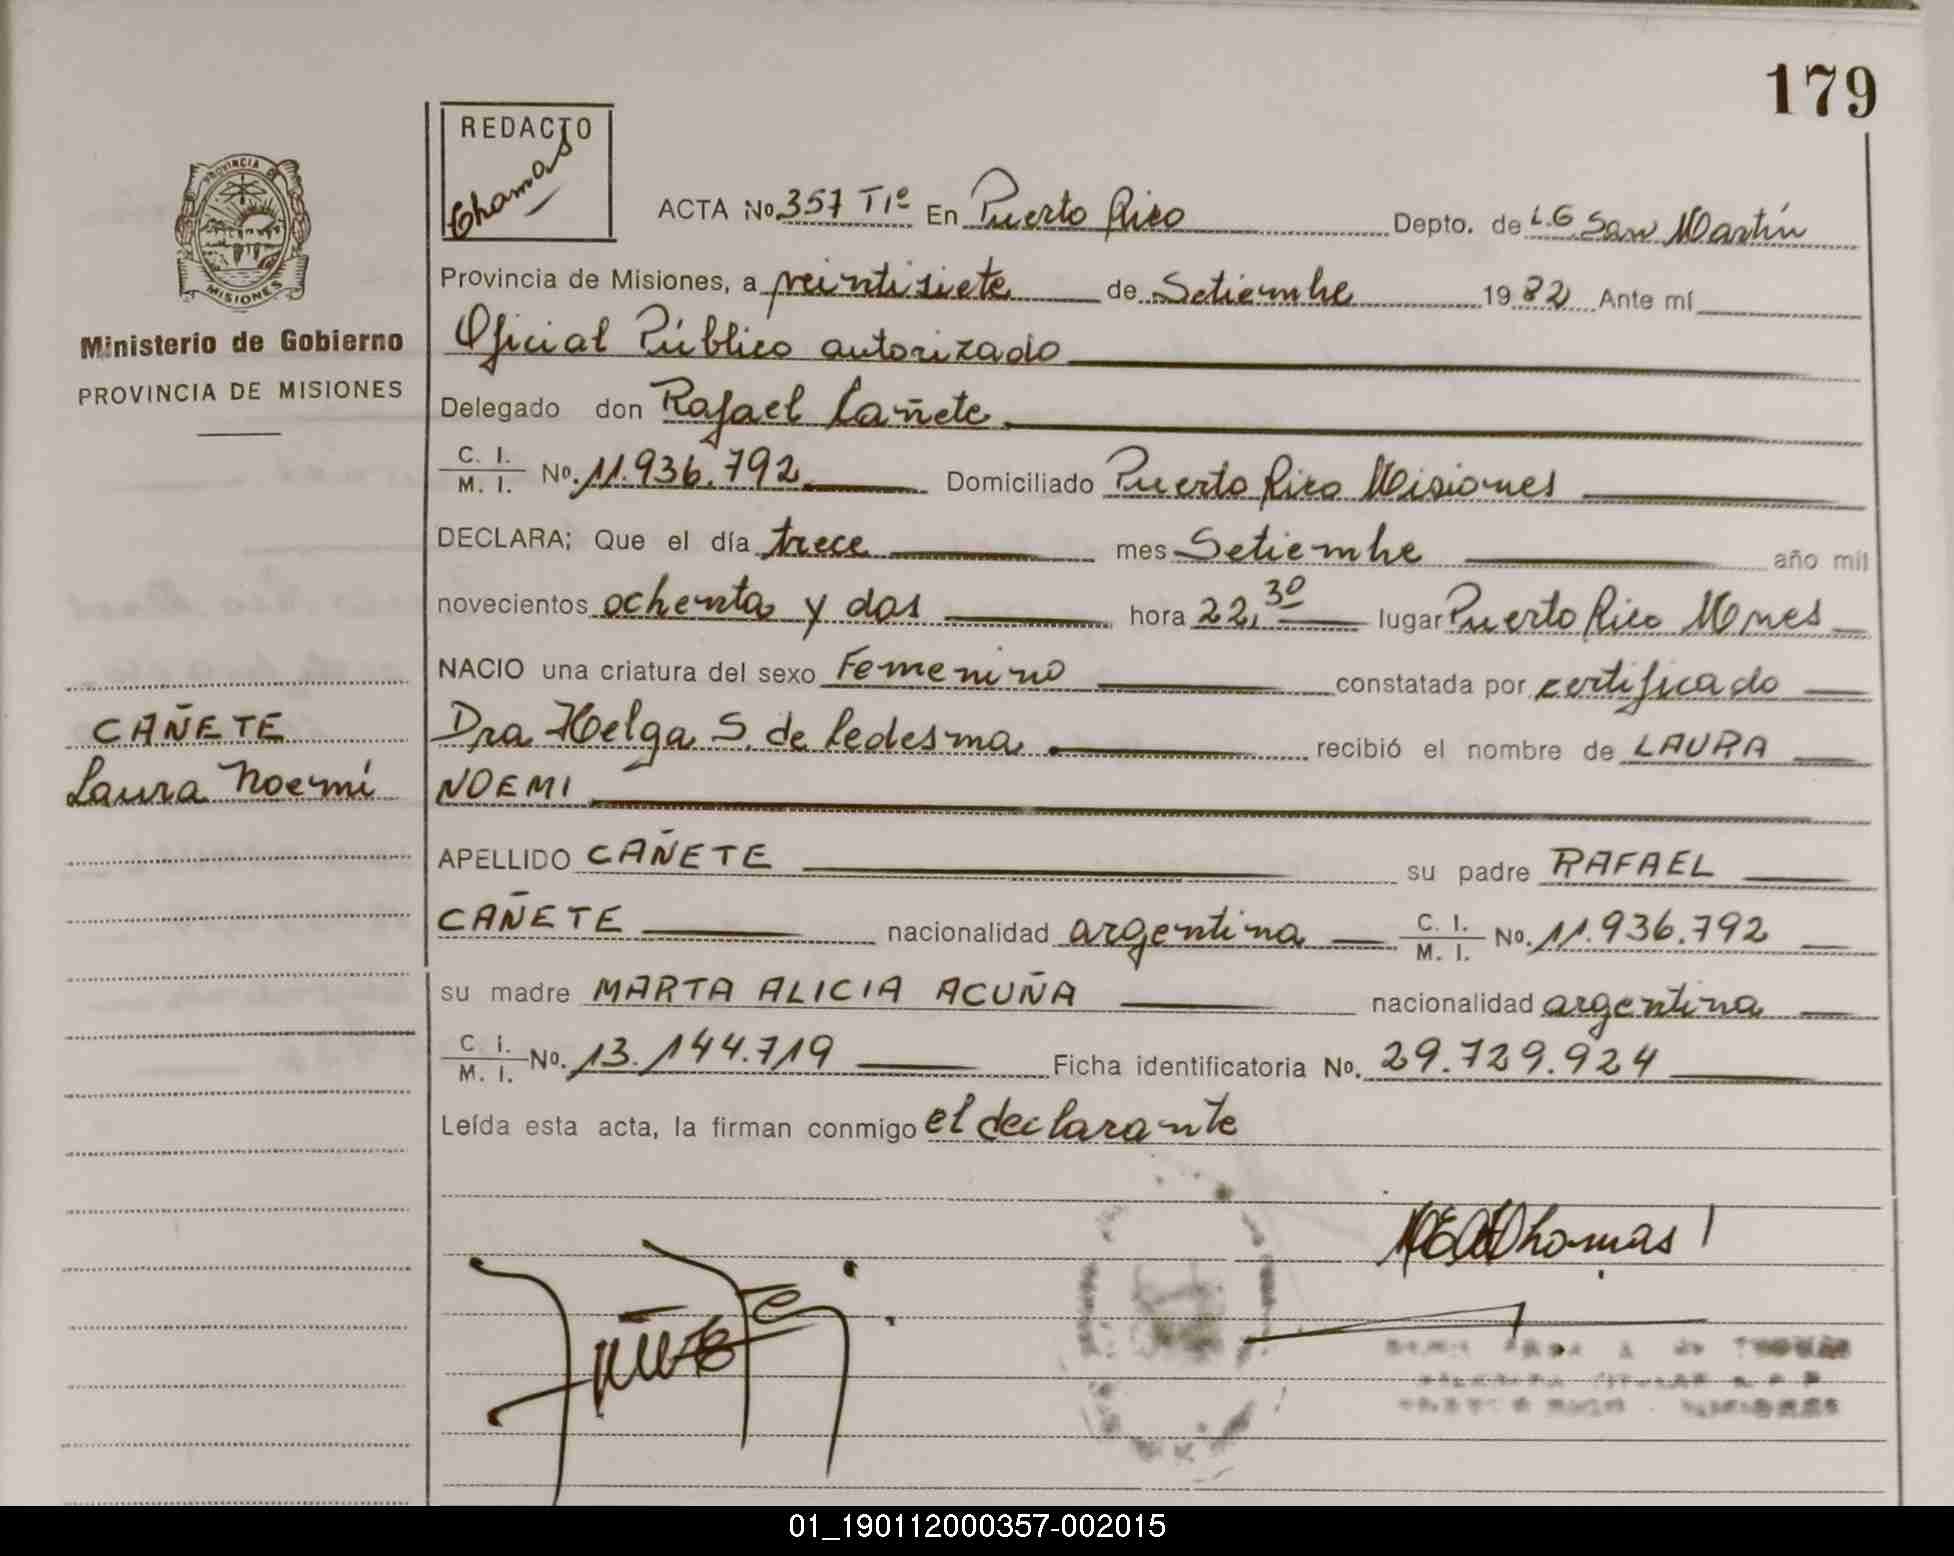 179
REDACTO
Thomas
PROVINCIA DE
MISIONES
Ministerio de Gobierno
PROVINCIA DE MISIONES
ACTA No. 357 T1º En Puerto Rico Depto. de L.G. San Martín
Provincia de Misiones, a veintisiete de Setiembre 1982 Ante mí
Oficial Público autorizado
Delegado don Rafael Cañete
C. I. / M. I. No. 11.936.792 Domiciliado Puerto Rico Misiones
DECLARA; Que el día trece mes Setiembre año mil
novecientos ochenta y dos hora 22,30 lugar Puerto Rico Mnes
NACIO una criatura del sexo Femenino constatada por certificado
Dra Helga S. de Ledesma recibió el nombre de LAURA
NOEMI
CAÑETE
Laura Noemí
APELLIDO CAÑETE su padre RAFAEL
CAÑETE nacionalidad argentina C. I. / M. I. No. 11.936.792
su madre MARTA ALICIA ACUÑA nacionalidad argentina
C. I. / M. I. No. 13.144.719 Ficha identificatoria No. 29.729.924
Leída esta acta, la firman conmigo el declarante
Thomas
01_190112000357-002015